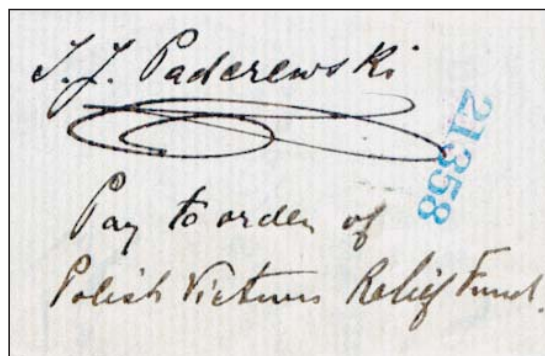 I. J. Paderewski
21358
Pay to order of
Polish Victims Relief Fund.